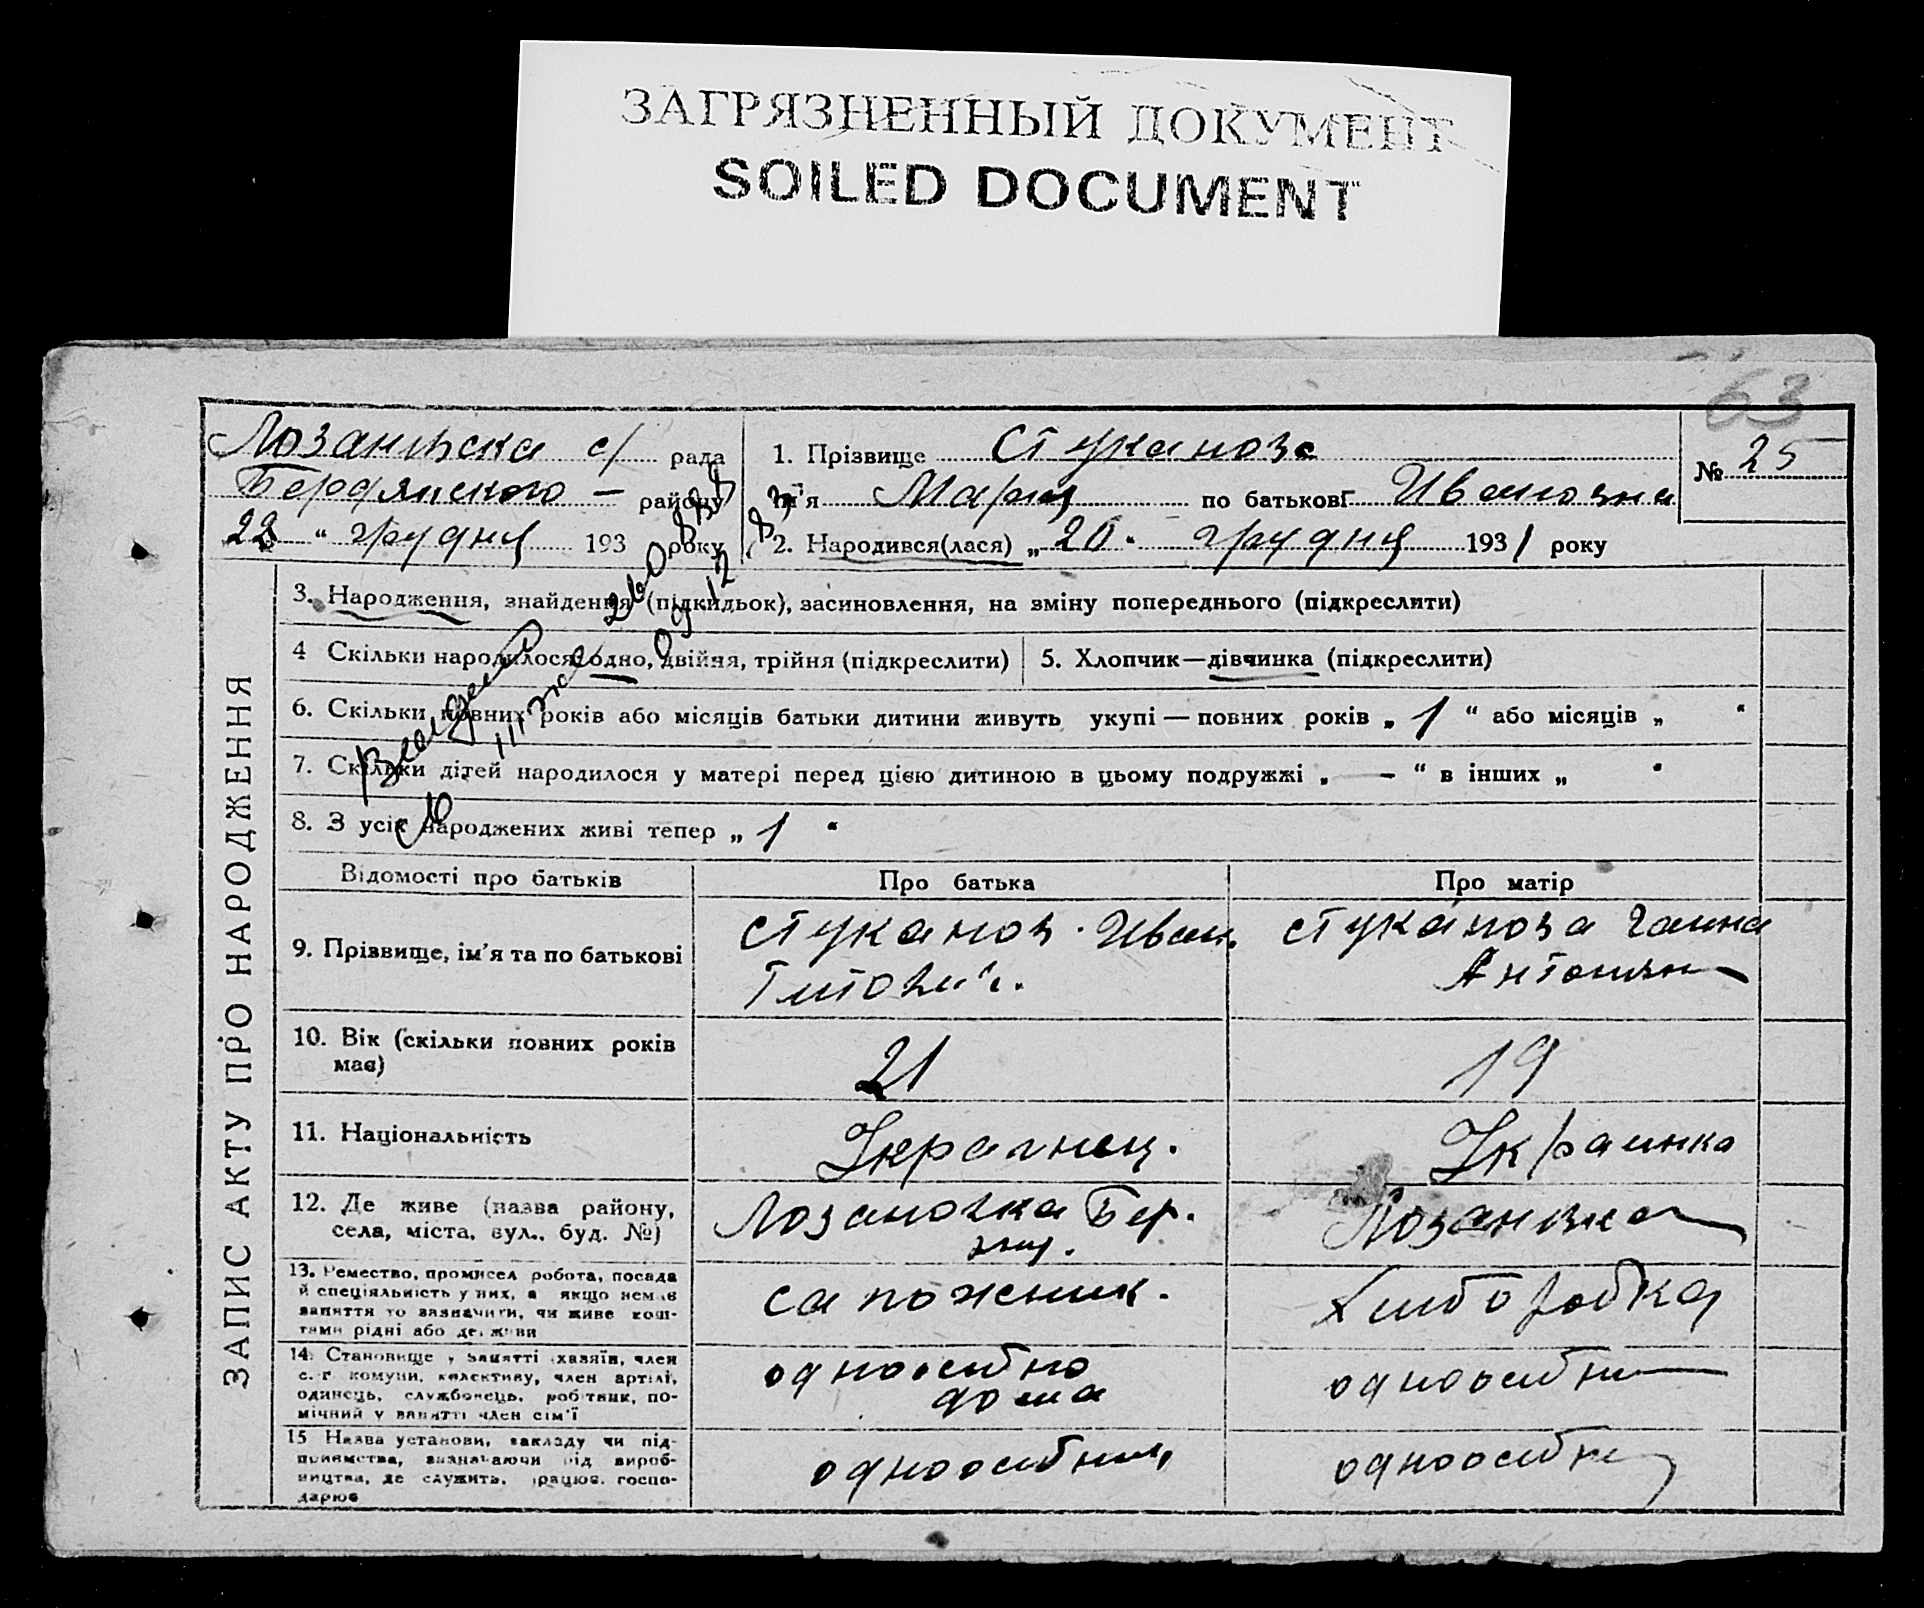 ЗАГРЯЗНЕННЫЙ ДОКУМЕНТ
SOILED DOCUMENT
63
рада
району
22 " грудня 193 року
1. Прізвище Стуканова
ім'я Мария по батькові Ивановна
2. Народився(лася) „ 20 " грудня 1931 року
№ 25
ЗАПИС АКТУ ПРО НАРОДЖЕННЯ
3. Народження, знайдення (підкидьок), засиновлення, на зміну попереднього (підкреслити)
4 Скільки народилося: одно, двійня, трійня (підкреслити)
5. Хлопчик—дівчинка (підкреслити)
6. Скільки повних років або місяців батьки дитини живуть укупі — повних років „ 1 “ або місяців „ “
7. Скільки дітей народилося у матері перед цією дитиною в цьому подружжі „ — “ в інших „ “
8. З усіх народжених живі тепер „ 1 “
Відомості про батьків
Про батька
Про матір
9. Прізвище, ім'я та по батькові
Стуканов Иван
Титович.
Стуканова Ганна
10. Вік (скільки повних років
має)
21
19
11. Національність
Украинец.
Украинка
12. Де живе (назва району,
села, міста, вул., буд. №)
Лозановка Бер.
Лозановка
13. Ремество, промисел робота, посада
й спеціяльність у них, а якщо немає
заняття то зазначити, чи живе кош-
тами рідні або держави
сапожник.
Хлиборобка
14. Становище у занятті хазяїн, член
с.-г. комуни, колективу, член артілі,
одинець, службовець, робітник, по-
мічний у занятті член сім'ї
одноосибно
дома
15 Назва установи, закладу чи під-
приємства, зазначаючи рід вироб-
ництва, де служить, працює, господарює